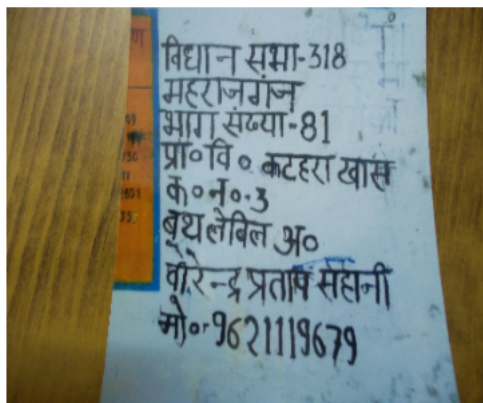 विधान सभा-318
महराजगंज
भाग संख्या-81
प्रा०वि० कटहरा खास
क०न०-3
बूथ लेविल अ०
वीरेन्द्र प्रताप सहानी
मो०-9621119679